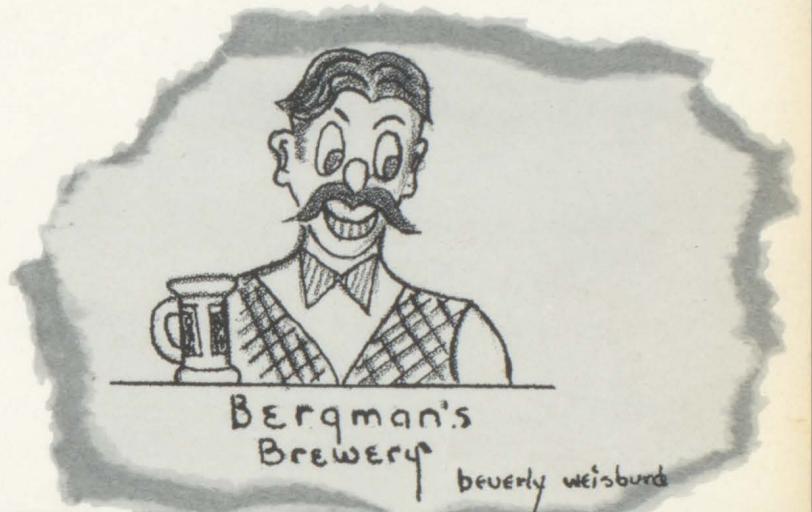 Bergman's
Brewery
beverly weisburd